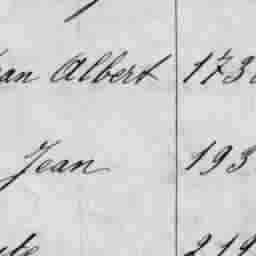 an Albert 173
Jean 193
te 219